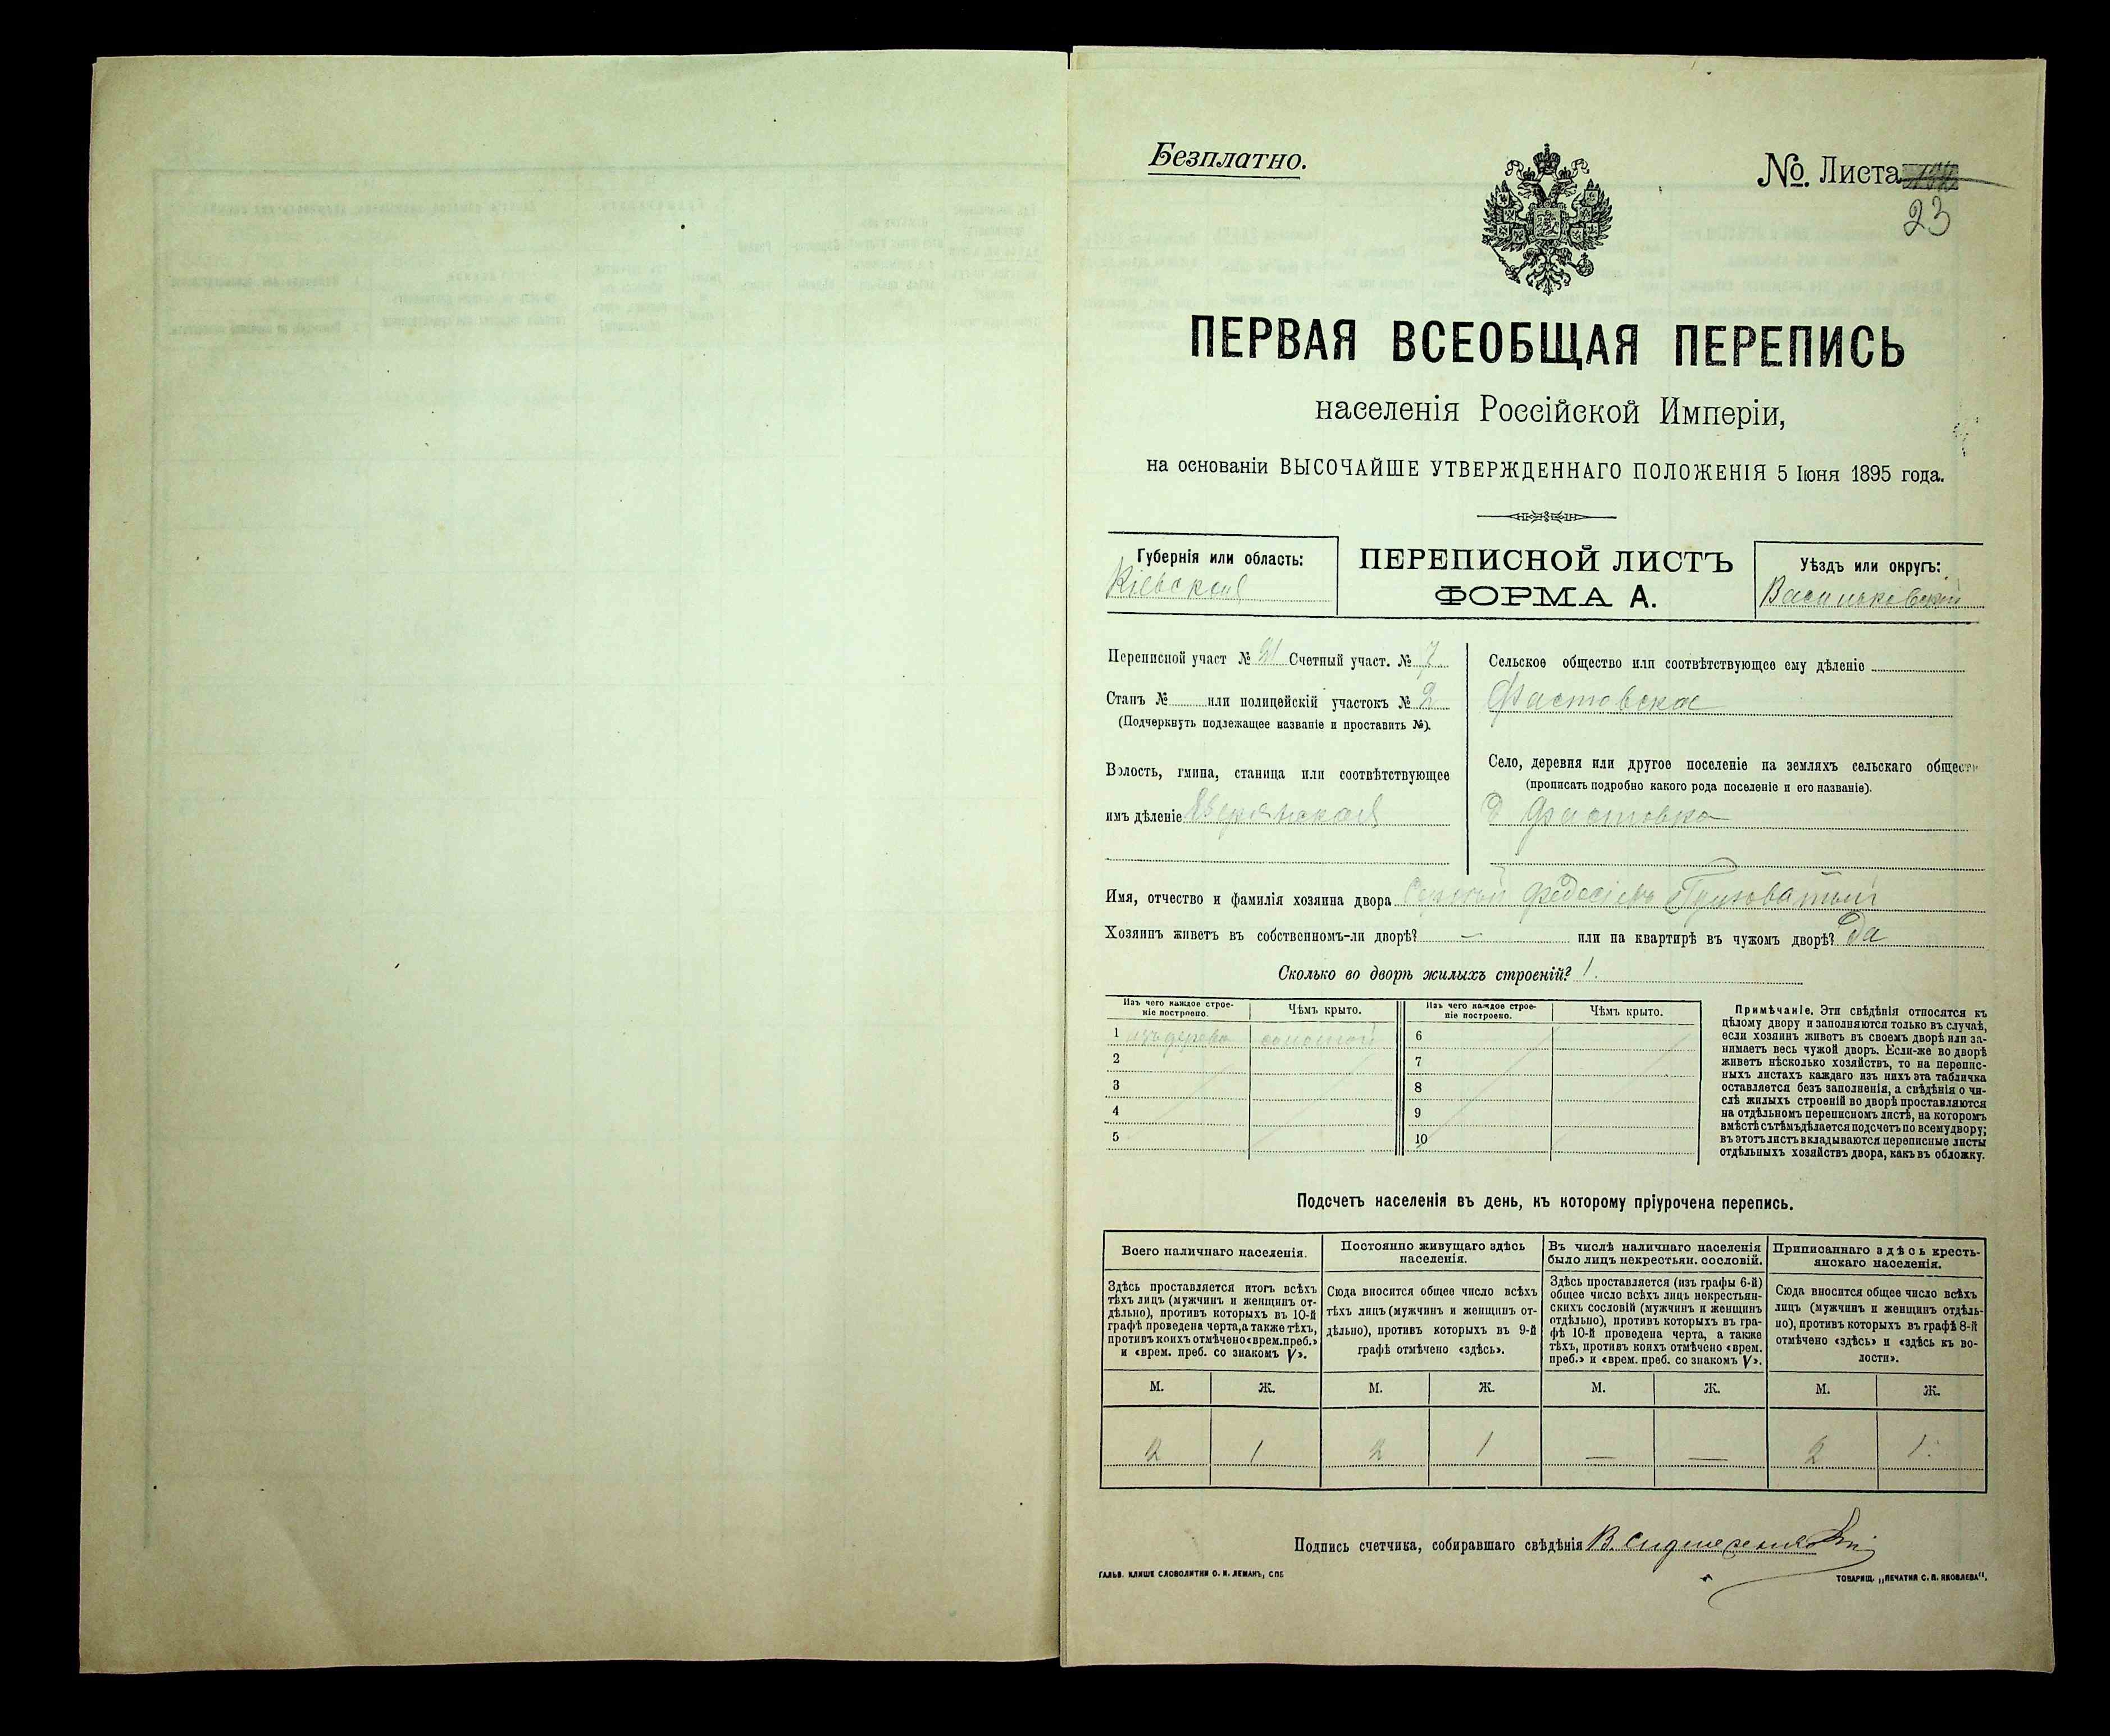 Безплатно.
№. Листа
23
ПЕРВАЯ ВСЕОБЩАЯ ПЕРЕПИСЬ
населенія Россійской Имперіи,
на основаніи ВЫСОЧАЙШЕ УТВЕРЖДЕННАГО ПОЛОЖЕНІЯ 5 Іюня 1895 года.
Губернія или область:
Кіевская
ПЕРЕПИСНОЙ ЛИСТЪ
ФОРМА А.
Уѣздъ или округъ:
Васильковскій
Переписной участ № 21 Счетный участ. № 7
Станъ № или полицейскій участокъ № 2
(Подчеркнуть подлежащее названіе и проставить №).
Волость, гмина, станица или соотвѣтствующее
имъ дѣленіе
Сельское общество или соотвѣтствующее ему дѣленіе
Фастовское
Село, деревня или другое поселеніе на земляхъ сельскаго общест
(прописать подробно какого рода поселеніе и его названіе).
д Фастовка
Имя, отчество и фамилія хозяина двора Сергій Федосіевъ
Хозяинъ живетъ въ собственномъ-ли дворѣ? — или на квартирѣ въ чужомъ дворѣ? Да
Сколько во дворѣ жилыхъ строеній? 1.
Изъ чего каждое строе-
ніе построено.
Чѣмъ крыто.
Изъ чего каждое строе-
ніе построено.
Чѣмъ крыто.
1 изъ дерева соломой
2
3
4
5
6
7
8
9
10
Примѣчаніе. Эти свѣдѣнія относятся къ
цѣлому двору и заполняются только въ случаѣ,
если хозяинъ живетъ въ своемъ дворѣ или за-
нимаетъ весь чужой дворъ. Если-же во дворѣ
живетъ нѣсколько хозяйствъ, то на перепис-
ныхъ листахъ каждаго изъ нихъ эта табличка
оставляется безъ заполненія, а свѣдѣнія о чи-
слѣ жилыхъ строеній во дворѣ проставляются
на отдѣльномъ переписномъ листѣ, на которомъ
вмѣстѣ съ тѣмъ дѣлается подсчетъ по всему двору;
въ этотъ листъ вкладываются переписные листы
отдѣльныхъ хозяйствъ двора, какъ въ обложку.
Подсчетъ населенія въ день, къ которому пріурочена перепись.
Всего наличнаго населенія.
Здѣсь проставляется итогъ всѣхъ
тѣхъ лицъ (мужчинъ и женщинъ от-
дѣльно), противъ которыхъ въ 10-й
графѣ проведена черта, а также тѣхъ,
противъ коихъ отмѣчено «врем. преб.»
и «врем. преб. со знакомъ V».
Постоянно живущаго здѣсь
населенія.
Сюда вносится общее число всѣхъ
тѣхъ лицъ (мужчинъ и женщинъ от-
дѣльно), противъ которыхъ въ 9-й
графѣ отмѣчено «здѣсь».
Въ числѣ наличнаго населенія
было лицъ некрестьян. сословій.
Здѣсь проставляется (изъ графы 6-й)
общее число всѣхъ лицъ некрестьян-
скихъ сословій (мужчинъ и женщинъ
отдѣльно), противъ которыхъ въ гра-
фѣ 10-й проведена черта, а также
тѣхъ, противъ коихъ отмѣчено «врем.
преб.» и «врем. преб. со знакомъ V».
Приписаннаго здѣсь кресть-
янскаго населенія.
Сюда вносится общее число всѣхъ
лицъ (мужчинъ и женщинъ отдѣль-
но), противъ которыхъ въ графѣ 8-й
отмѣчено «здѣсь» и «здѣсь въ во-
лости».
М. Ж. М. Ж. М. Ж. М. Ж.
2 1 2 1 — — 2 1.
Подпись счетчика, собиравшаго свѣдѣнія В.
ГАЛЬВ. КЛИШЕ СЛОВОЛИТНИ О. И. ЛЕМАНЪ, СПБ
ТОВАРИЩ. „ПЕЧАТНЯ С. П. ЯКОВЛЕВА“.